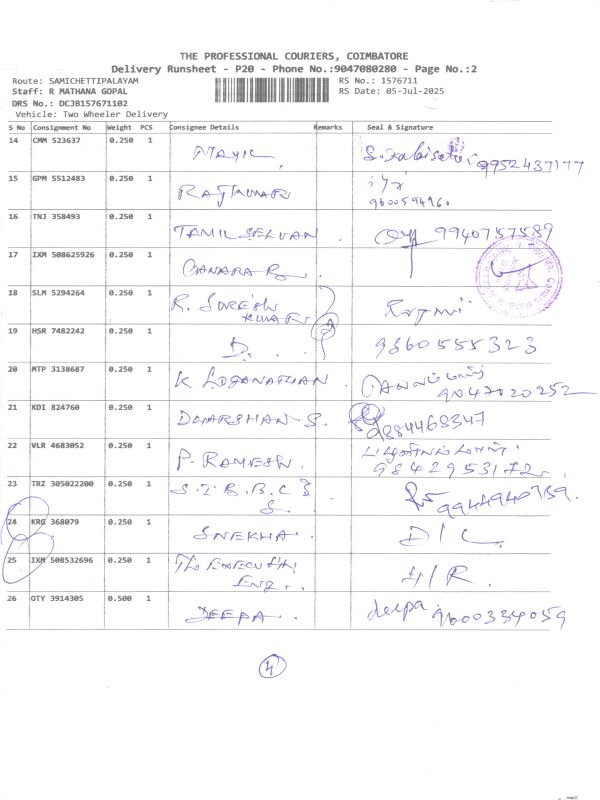 THE PROFESSIONAL COURIERS, COIMBATORE
Delivery Runsheet - P20 - Phone No.:9047080280 - Page No.:2
Route: SAMICHETTIPALAYAM RS No.: 1576711
Staff: R MATHANA GOPAL RS Date: 05-Jul-2025
DRS No.: DCJB157671102
Vehicle: Two Wheeler Delivery
S No Consignment No Weight PCS Consignee Details Remarks Seal & Signature
14 CMM 523637 0.250 1 9952437177
15 GPM 5512483 0.250 1 RAJKUMAR
9600594960
16 TNJ 358493 0.250 1 TAMIL SELVAN . 9940757589
17 IXM 508625926 0.250 1 CANARA B.
18 SLM 5294264 0.250 1 R. SURESH
KUMAR
19 HSR 7482242 0.250 1 D. 9360555323
20 MTP 3138687 0.250 1 K LOGANATHAN .
9047020252
21 KDI 824760 0.250 1 DHARSHAN S. 9884468347
22 VLR 4683052 0.250 1 P. RAMESH.
9842953172
23 TRZ 305022200 0.250 1 S.I.B.B.C
24 KRG 368079 0.250 1 SNEKHA. D/C
25 IXM 508532696 0.250 1 The EXECUTIVE
Eng.. H/R.
26 OTY 3914305 0.500 1 DEEPA. deepa. 9600334059
4